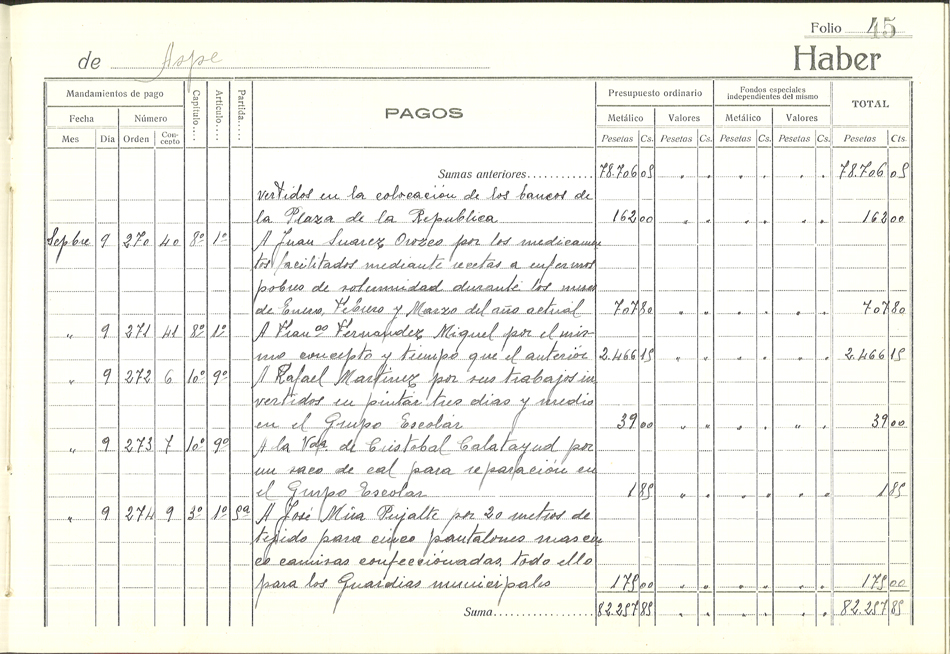 Folio 45
de Aspe Haber
Mandamientos de pago Capítulo.... Artículo.... Partida.... PAGOS Presupuesto ordinario Fondos especiales independientes del mismo TOTAL
Fecha Número Metálico Valores Metálico Valores
Mes Día Orden Concepto Pesetas Cs. Pesetas Cs. Pesetas Cs. Pesetas Cs. Pesetas Cts.
Sumas anteriores............ 78.706 05 " " " " " " 78.706 05
vertidos en la colocación de los bancos de
la Plaza de la Republica 162 00 " " " " " " 162 00
Sepbre 9 270 40 8º 1º A Juan Suarez Orozco por los medicamen
tos facilitados mediante recetas a enfermos
pobres de solemnidad durante los meses
de Enero, Febrero y Marzo del año actual 707 80 " " " " " " 707 80
" 9 271 41 8º 1º A Franco Fernandez Miguel por el mis-
mo concepto y tiempo que el anterior 2.466 15 " " " " " " 2.466 15
" 9 272 6 10º 9º A Rafael Martinez por sus trabajos in
vertidos en pintar tres dias y medio
en el Grupo Escolar 39 00 " " " " " " 39 00
" 9 273 7 10º 9º A la Vda. de Cristobal Calatayud por
un saco de cal para reparación en
el Grupo Escolar 1 85 " " " " " " 1 85
" 9 274 9 3º 1º 5ª A José Mira Pujalte por 20 metros de
tejido para cinco pantalones mas cin
co camisas confeccionadas, todo ello
para los Guardias municipales 175 00 " " " " " " 175 00
Suma.................... 82.257 85 " " " " " " 82.257 85